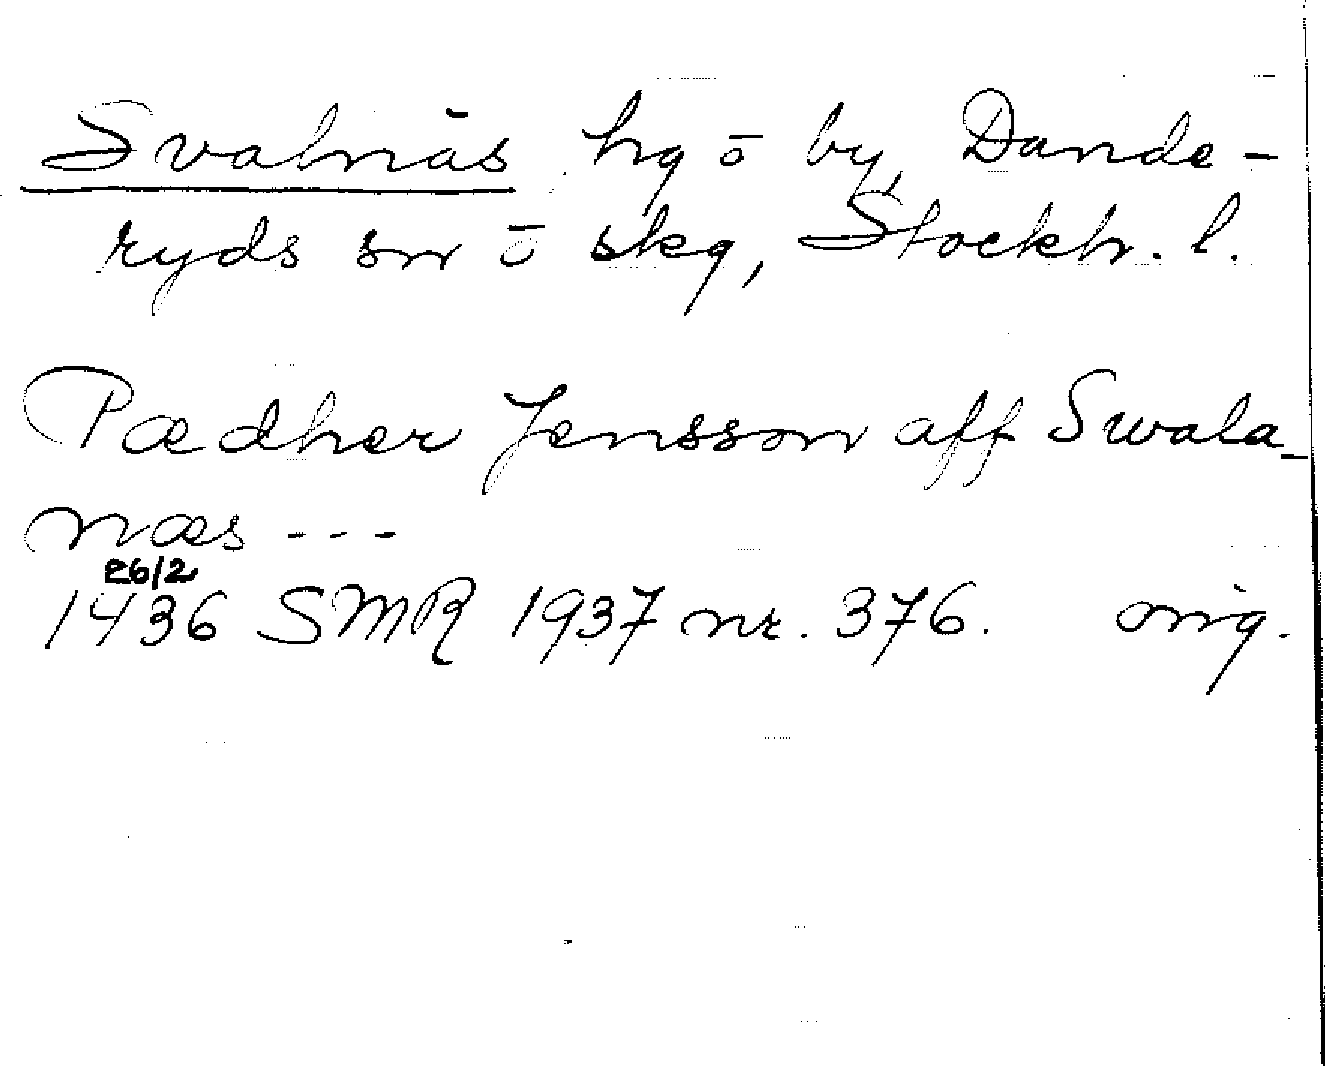 Svalnäs hg o by, Dande-
ryds sn o skg, Stockh. l.
Pædher Jensson aff Swala-
næs ---
26/2
1436 SMR 1937 nr. 376. orig.